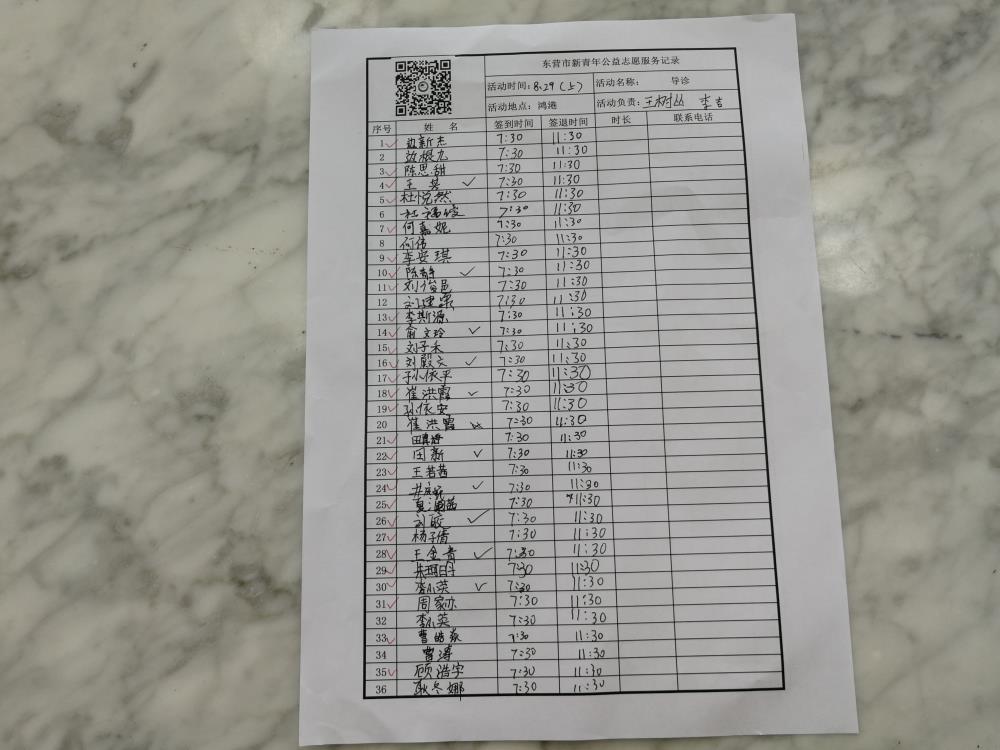 东营市新青年公益志愿服务记录
活动时间：8.29（上） 活动名称： 导诊
活动地点：鸿港 活动负责：王树丛 李吉
序号 姓 名 签到时间 签退时间 时长 联系电话
1 新志 7:30 11:30
2 7:30 11:30
3 陈思甜 7:30 11:30
4 王 7:30 11:30
5 杜悦然 7:30 11:30
6 杜 7:30 11:30
7 何嘉妮 7:30 11:30
8 何伟 7:30 11:30
9 李安琪 7:30 11:30
10 陈静 7:30 11:30
11 刘俊邑 7:30 11:30
12 刘建 7:30 11:30
13 李斯源 7:30 11:30
14 俞文玲 7:30 11:30
15 刘子禾 7:30 11:30
16 刘殿文 7:30 11:30
17 孙依平 7:30 11:30
18 崔洪霞 7:30 11:30
19 孙依安 7:30 11:30
20 崔洪霞 7:30 11:30
21 7:30 11:30
22 田新 7:30 11:30
23 王若茜 7:30 11:30
24 7:30 11:30
25 夏 7:30 11:30
26 刘 7:30 11:30
27 杨子倩 7:30 11:30
28 王金青 7:30 11:30
29 朱珥 7:30 11:30
30 李小英 7:30 11:30
31 周家亦 7:30 11:30
32 李小英 7:30 11:30
33 曹皓焱 7:30 11:30
34 曹涛 7:30 11:30
35 顾浩宇 7:30 11:30
36 耿冬娜 7:30 11:30